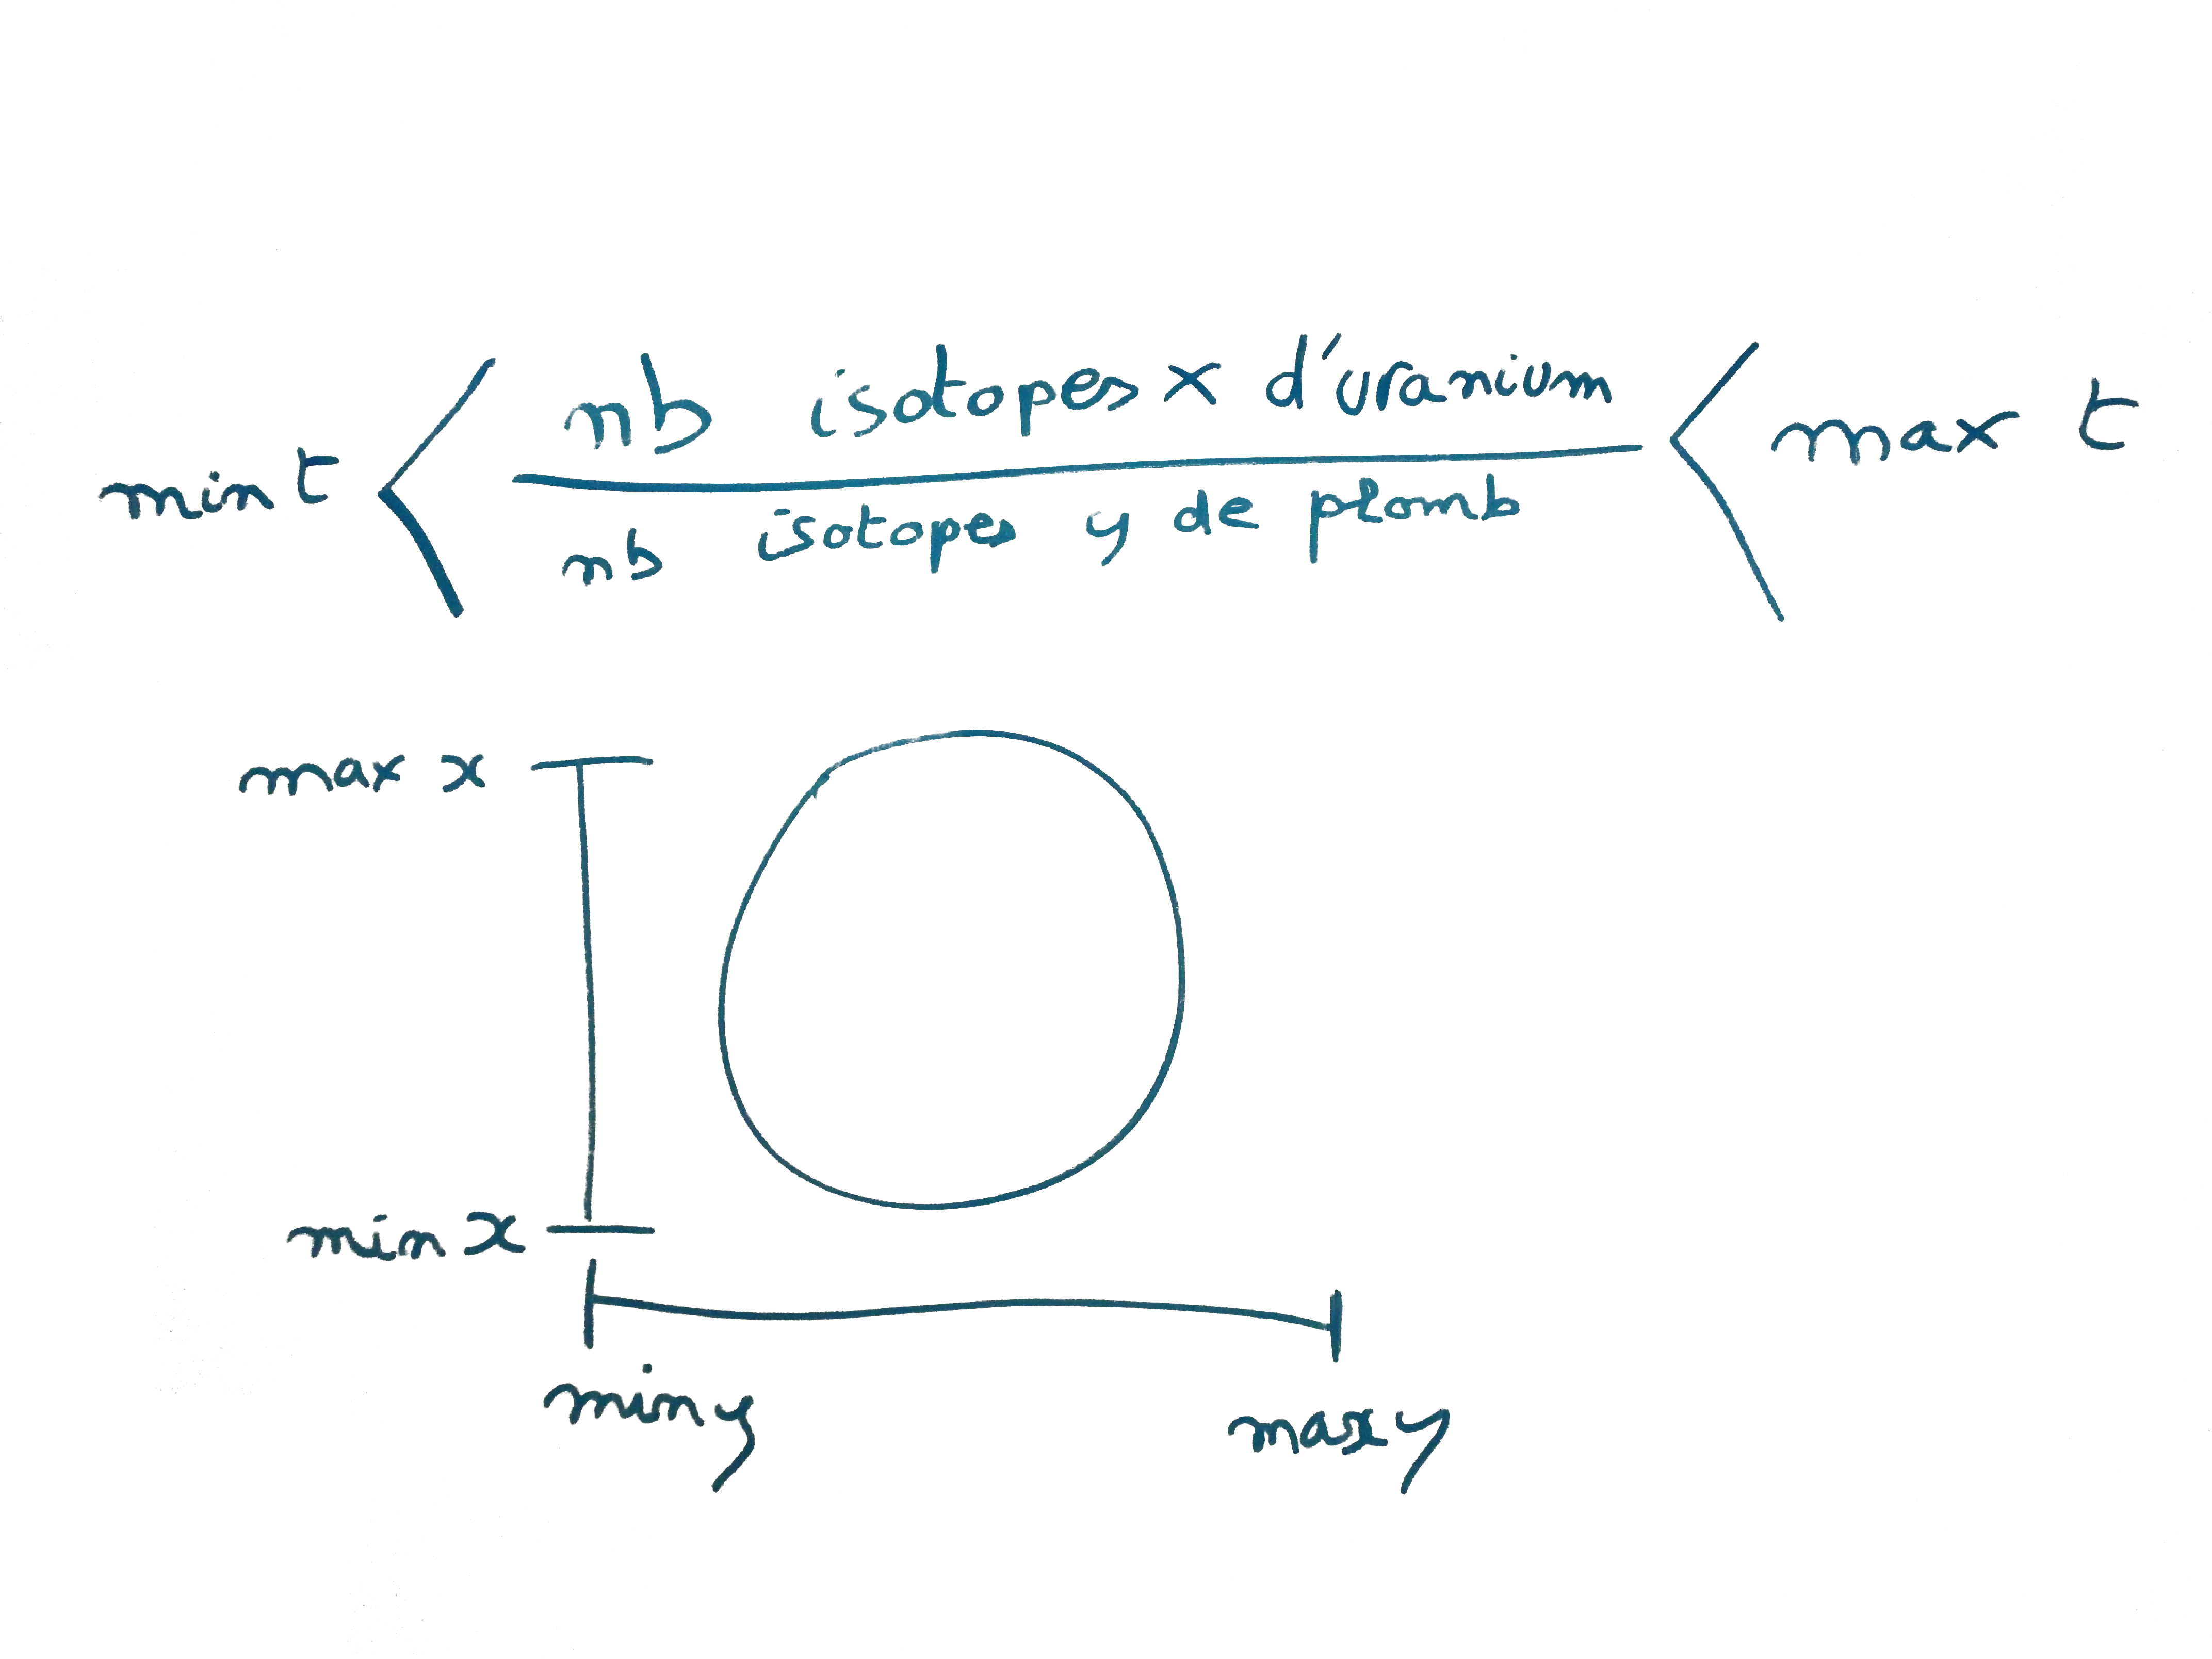 min t < nb isotopes x d'uranium < max t
nb isotopes y de plomb
max x
min x
min y
max y